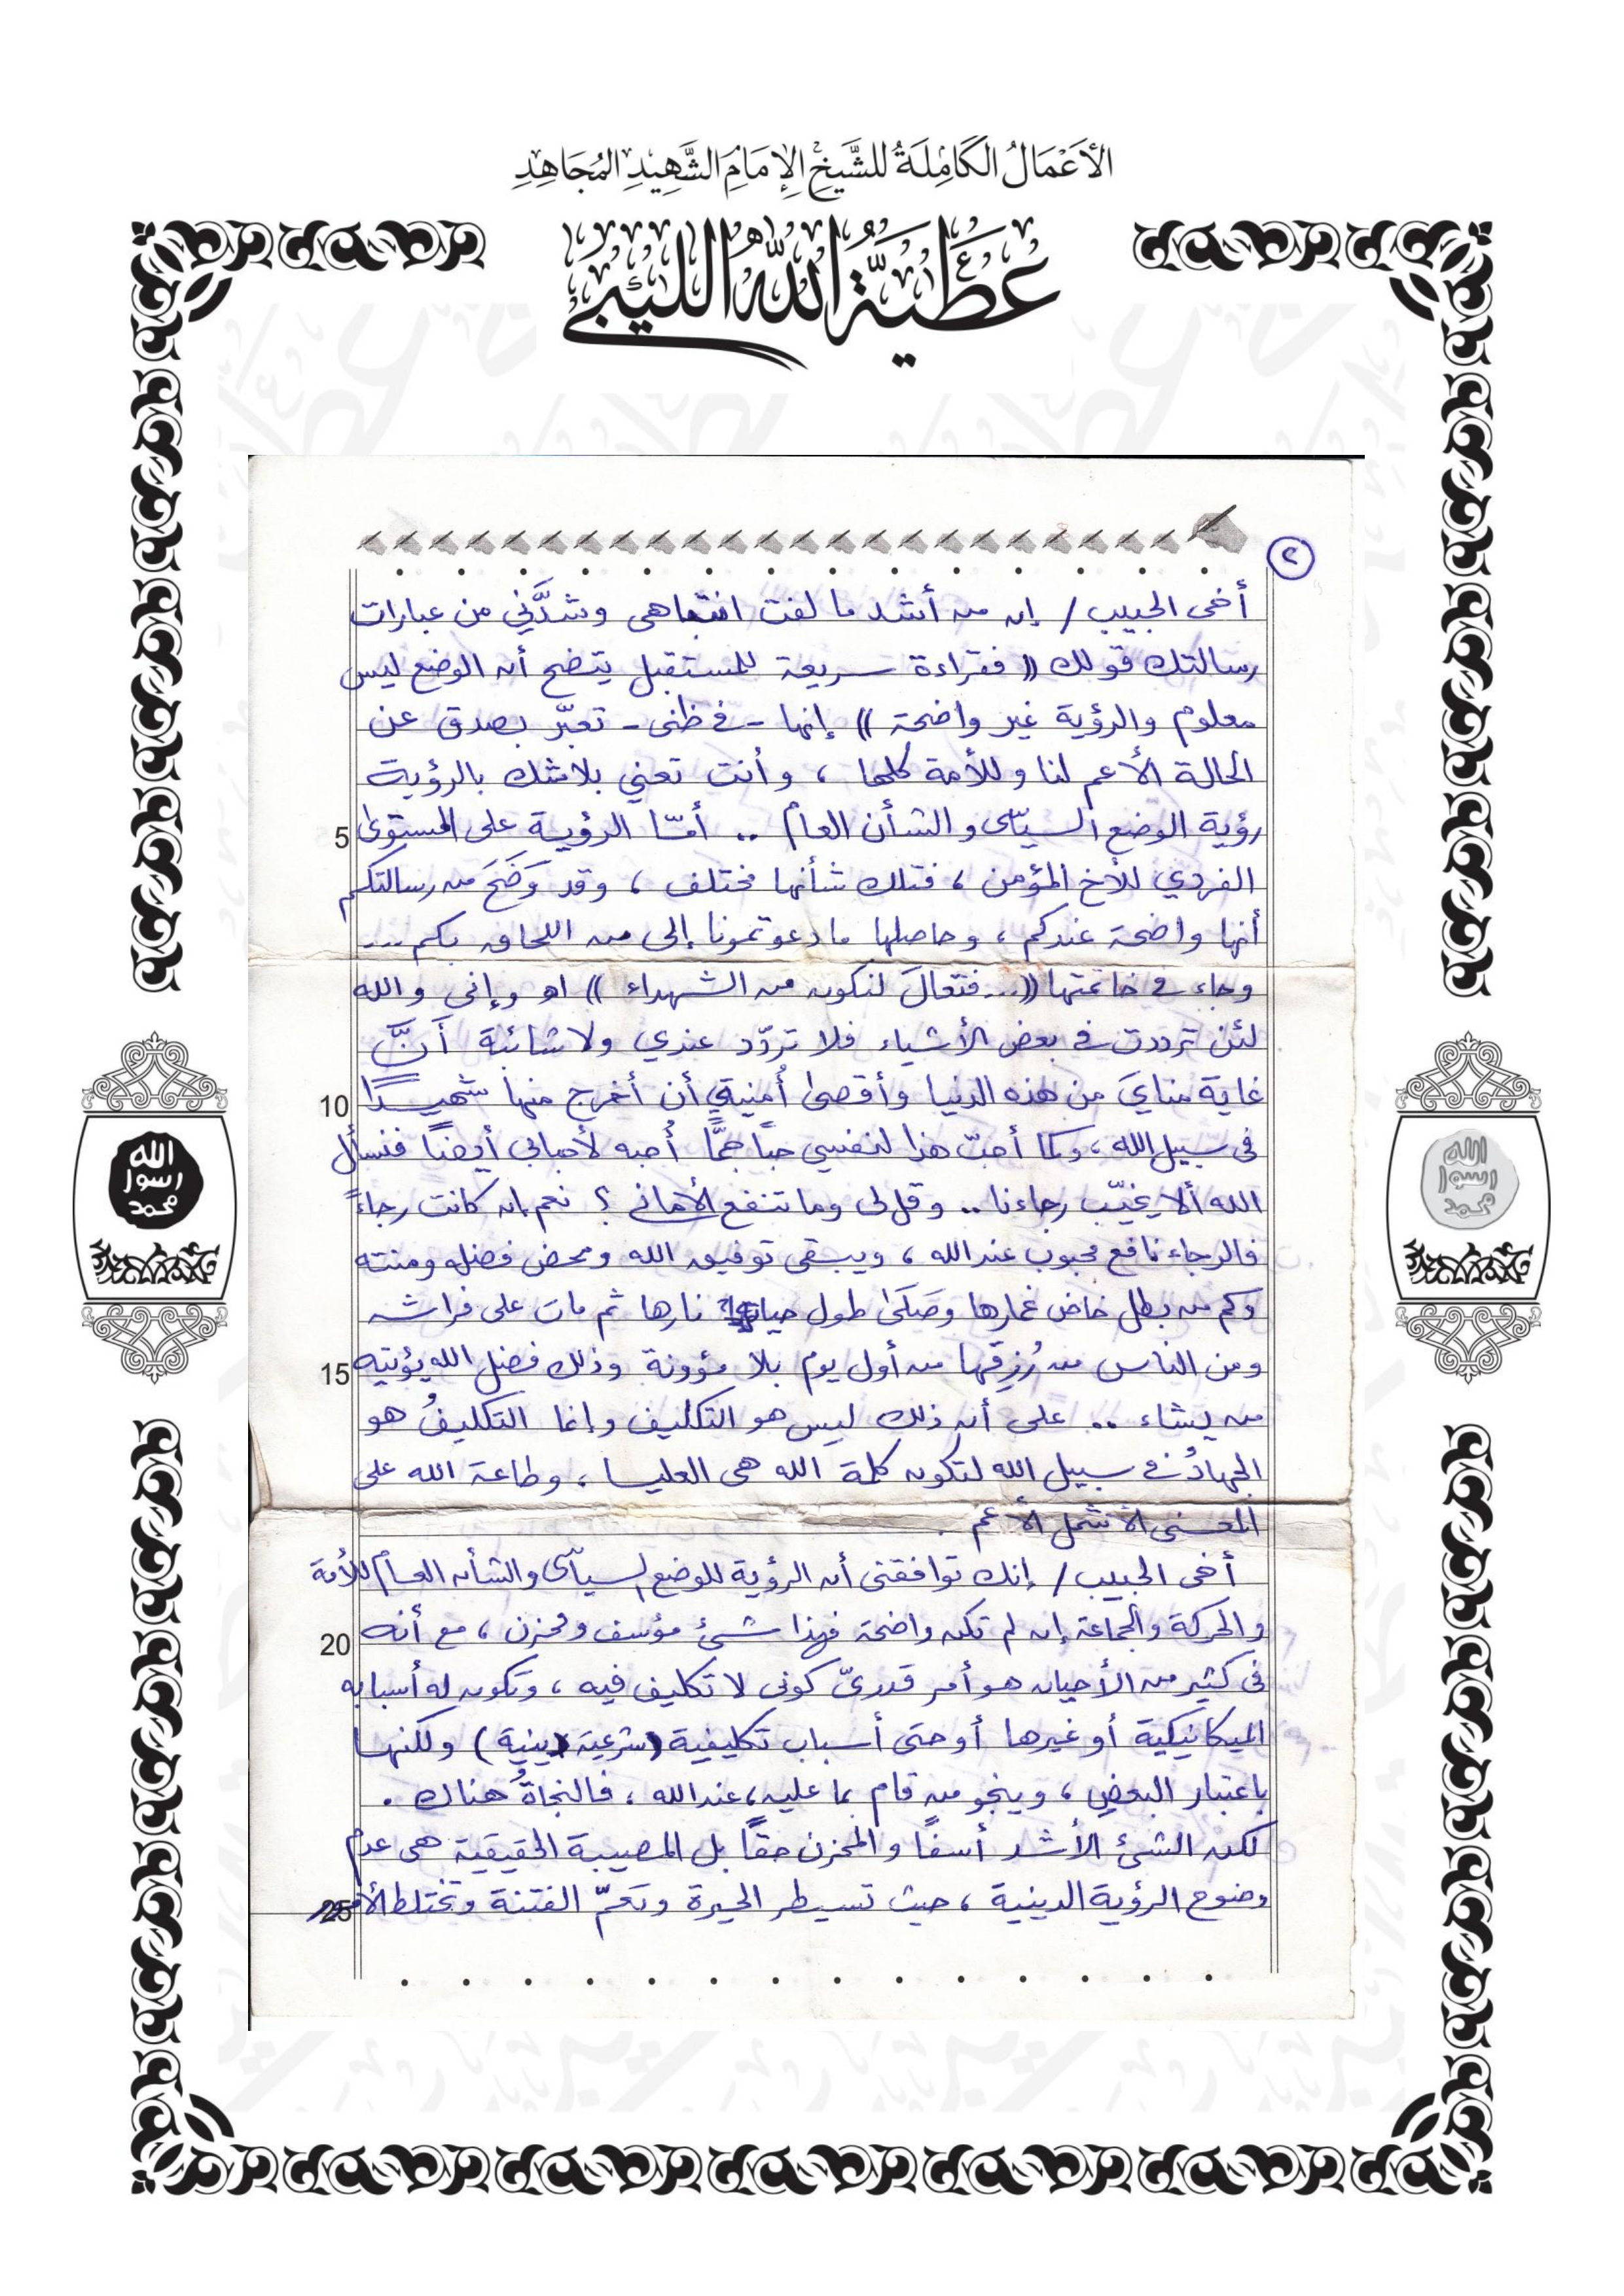 الأَعْمَالُ الكَامِلَةُ للشَّيخِ الإِمَامِ الشَّهِيدِ المُجَاهِدِ
عَطِيَّةُ اللهِ الليبيّ
٢
أخى الحبيب / إن من أشد ما لفت انتباهى وشدَّني من عبارات
رسالتك قولك (( فقراءة سريعة للمستقبل يتضح أن الوضع ليس
معلوم والرؤية غير واضحة )) إنها - في ظنى - تعبّر بصدق عن
الحالة الأعم لنا وللأمة كلها ، وأنت تعني بلا شك بالرؤية
5
رؤية الوضع السياسى والشأن العام .. أمّا الرؤية على المستوى
الفردي للأخ المؤمن ، فتلك شأنها مختلف ، وقد وَضَحَ من رسالتكم
أنها واضحة عندكم ، وحاصلها ما دعوتمونا إلى من اللحاق بكم ...
وجاء في خاتمتها ((... فتعالَ لنكون من الشهداء )) اهـ وإنى والله
لئن ترددت في بعض الأشياء فلا تردّد عندي ولا شائبة أَنَّ
10
غاية منايَ من هذه الدنيا وأقصى أُمنيتي أن أخرج منها شهيـــدًا
فى سبيل الله ، وكما أحبّ هذا لنفسي حبًا جمًّا أُحبه لأحبابي أيضًا فنسأل
الله ألا يخيّب رجاءنا .. وقل لى وما تنفع الأمانى ؟ نعم إن كانت رجاءً
فالرجاء نافع محبوب عند الله ، ويبقى توفيق الله ومحض فضله ومنته
وكم من بطل خاض غمارها وصَلَىٰ طول حياته نارها ثم مات على فراشه
15
ومن الناس من رُزِقَها من أول يوم بلا مؤونة وذلك فضل الله يؤتيه
من يشاء .. على أن ذلك ليس هو التكليف وإنما التكليفُ هو
الجهادُ في سبيل الله لتكون كلمة الله هى العليــا ، وطاعة الله على
المعنى الأشمل الأعم .
أخى الحبيب / إنك توافقنى أن الرؤية للوضع السياسى والشأن العام للأمة
20
والحركة والجماعة إن لم تكن واضحة فهذا شــئ مؤسف ومحزن ، مع أنه
فى كثير من الأحيان هو أمر قدريّ كونى لا تكليف فيه ، وتكون له أسبابه
الميكانيكية أو غيرها أو حتى أسباب تكليفية (شرعية دينية) ولكنهــا
باعتبار البعض ، وينجو من قام بما عليه ، عند الله ، فالنجاةُ هناك .
لكن الشئ الأشد أسفًا والمحزن حقًا بل المصيبة الحقيقية هى عدم
25
وضوح الرؤية الدينية ، حيث تسيطر الحيرة وتعمّ الفتنة وتختلط الأمور
الله
رسول
محمد
الله
رسول
محمد